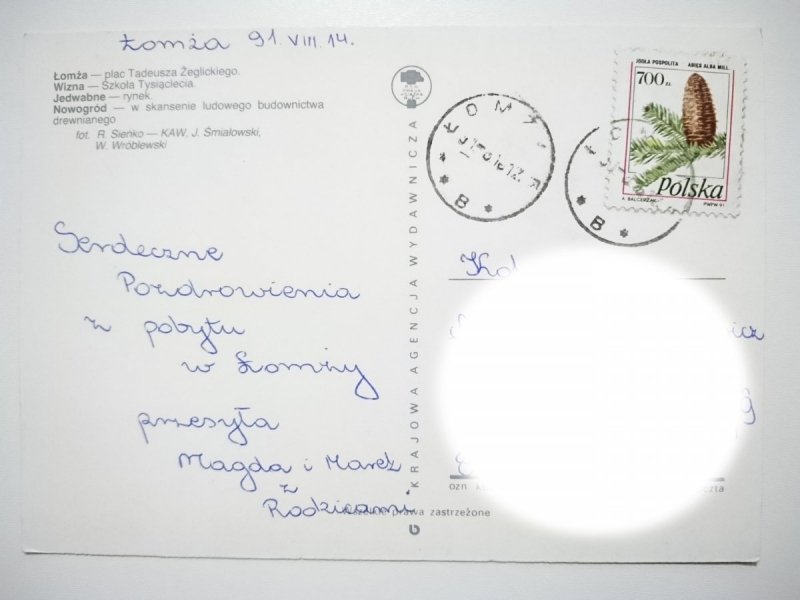 Łomża 91.VIII.14.
Łomża — plac Tadeusza Żeglickiego.
Wizna — Szkoła Tysiąclecia.
Jedwabne — rynek.
Nowogród — w skansenie ludowego budownictwa
drewnianego
fot. R. Sieńko — KAW, J. Śmiałowski,
W. Wróblewski
Serdeczne
Pozdrowienia
z pobytu
w Łomży
przesyła
Magda i Marek
z
Rodzicami.
KRAJOWA AGENCJA WYDAWNICZA
Wszelkie prawa zastrzeżone
JODŁA POSPOLITA ABIES ALBA MILL.
700 ZŁ
Polska
A. BALCERZAK
PWPW 91
ŁOMŻA
B
B
Kol
icz
ozn
czta